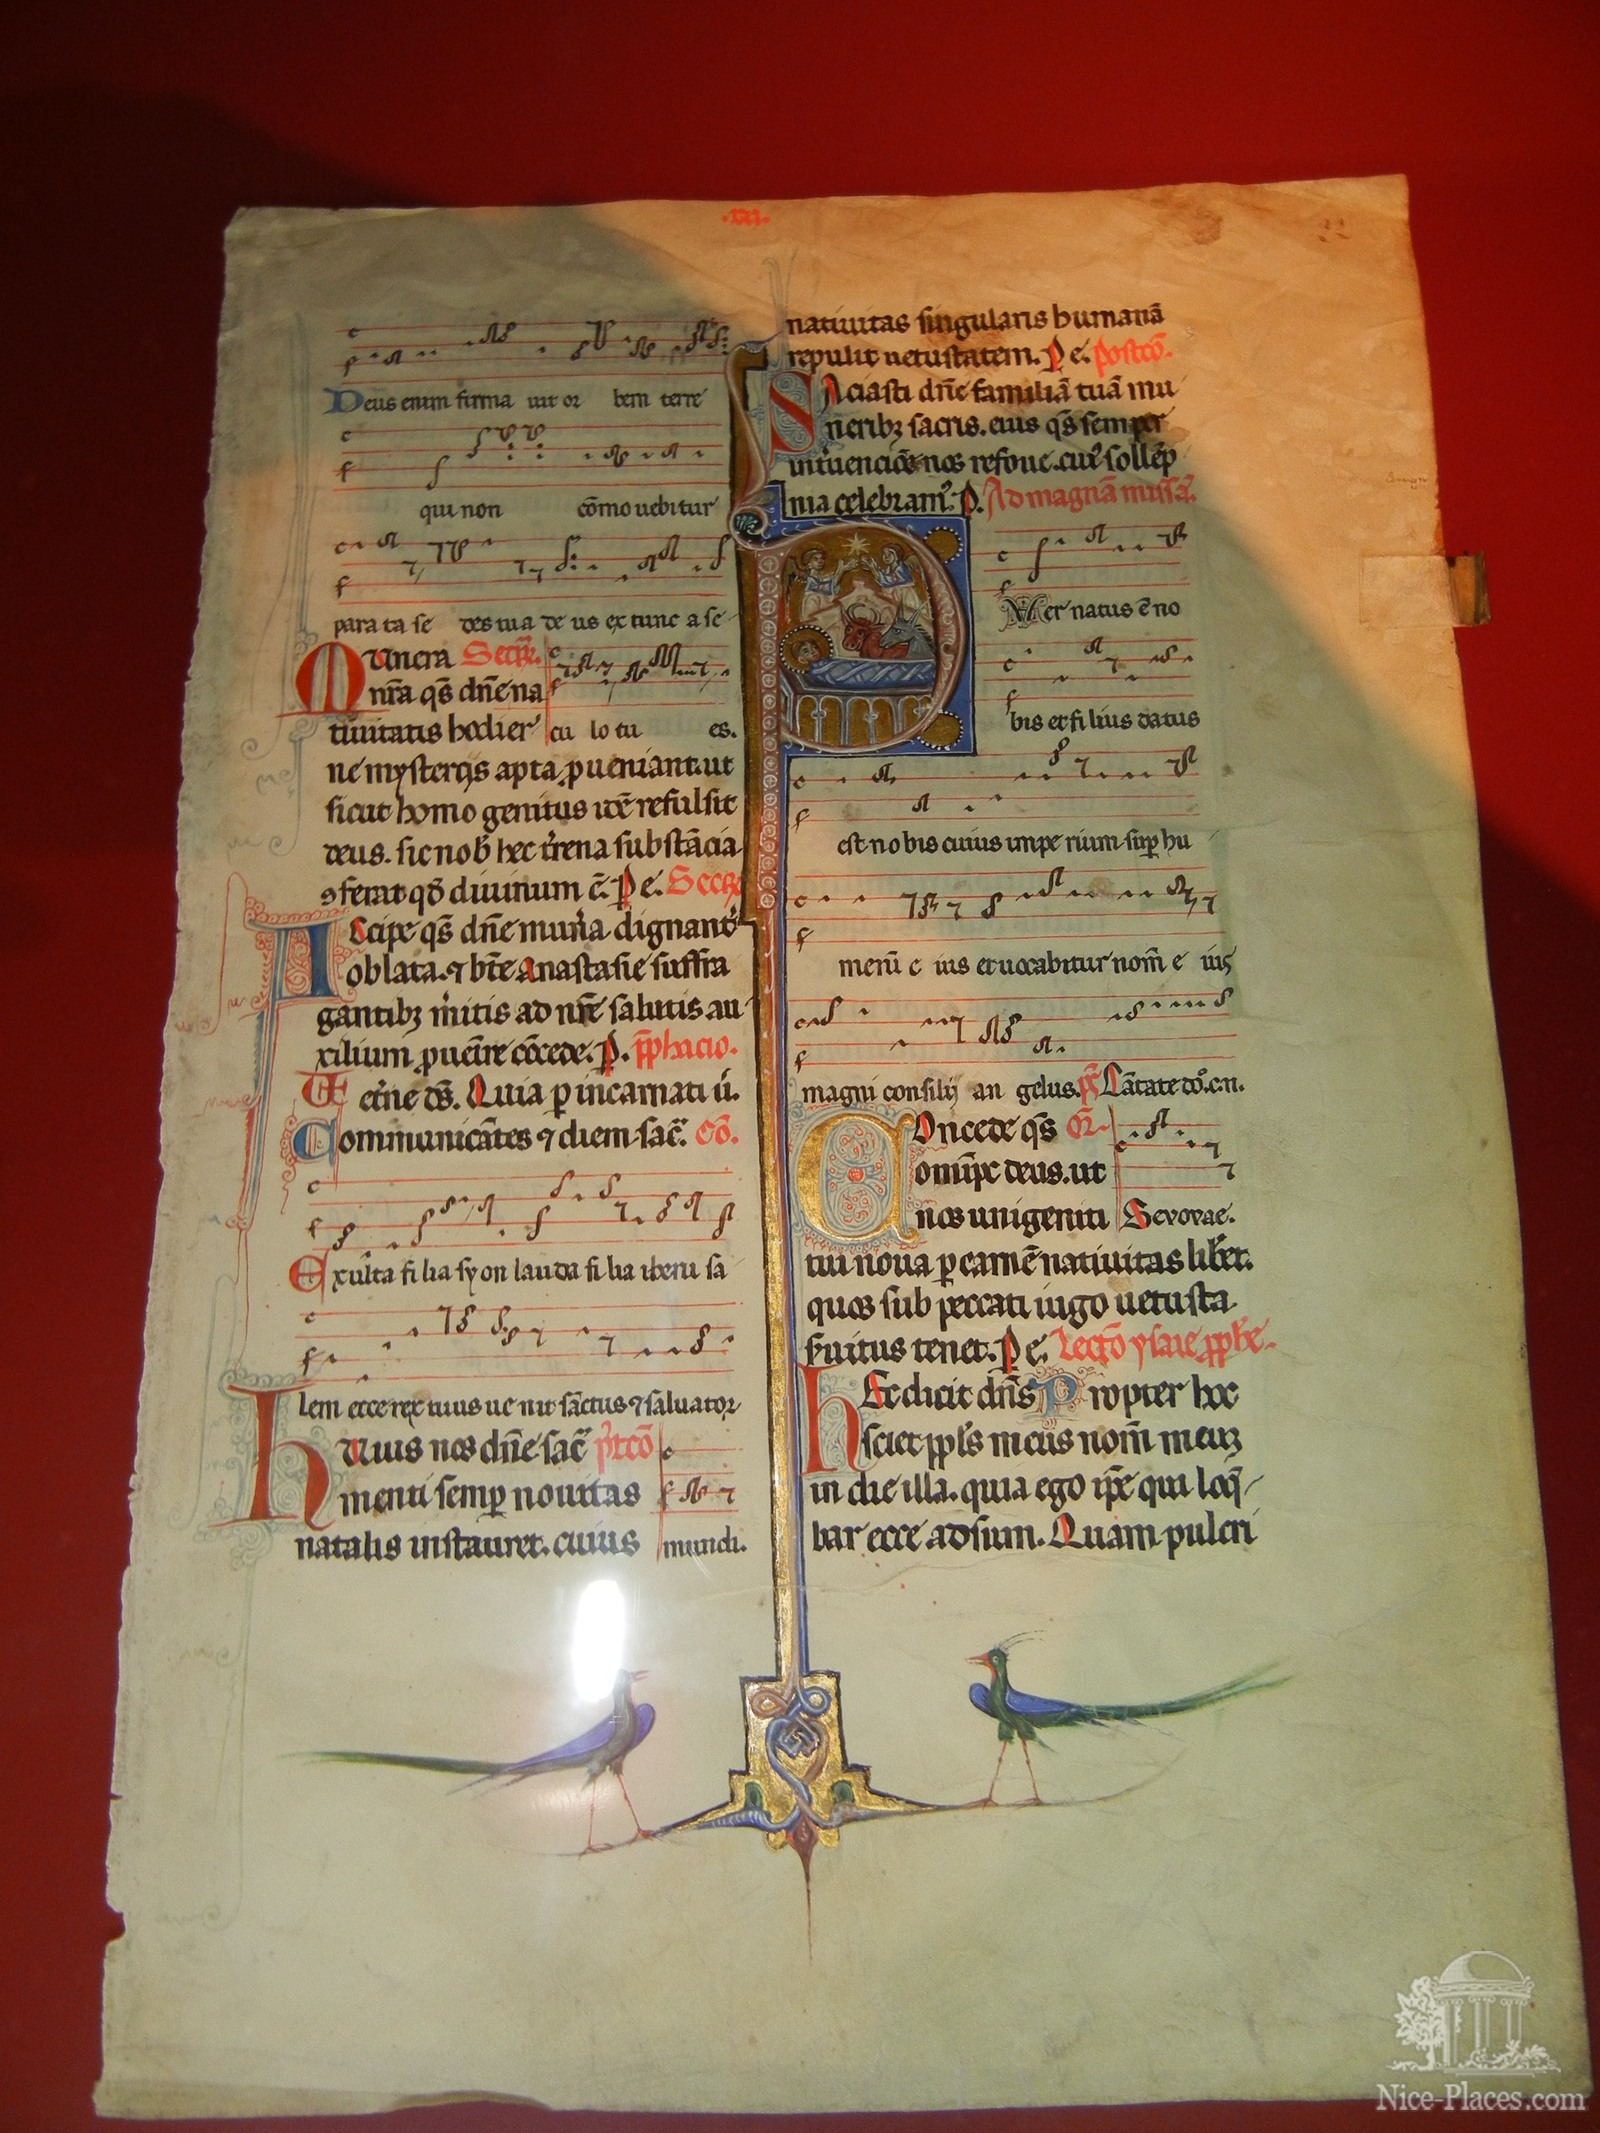 Deus enim firma uit or bem terre
qui non cōmouebitur
parata se des tua de us ex tunc a se
Munera Secr̄.
nr̄a qs̄ dn̄e na
tiuitatis hodier cu lo tu es.
ne mysterijs apta ꝓueniant. ut
sicut homo genitus idē refulsit
deus. sic nob̄ hec t̓rena substācia
ꝯferat qd̄ diuinum ē. Pe. Secr̄
Accipe qs̄ dn̄e mun̓a dignant̓
oblata. ⁊ bt̄e Anastasie suffra
gantibꝫ m̓itis ad nr̄e salutis au
xilium ꝓuenire cōcede. P.
et̓ne ds̄. Quia ꝑ incarnati u̓.
Communicātes ⁊ diem sac̄. Cō.
Exulta filia syon lauda filia iheru sa
lem ecce rex tuus uenit sāctus ⁊ saluator
Huius nos dn̄e sac̄ p̓tcō
menti semꝑ nouitas
natalis instauret. cuius mundi.
natiuitas singularis humanā
repulit uetustatem. Pe. postcō.
Saciasti dn̄e familiā tuā mu
neribꝫ sacris. eius qs̄ semper
nos refoue. cui̓ sollēp
nia celebram̓. P. Ad magnā missā.
Puer natus ē no
bis et filius datus
est nobis cuius impe rium suꝑ hu
merū e ius et uocabitur nom̄ e ius
magni consilij an gelus. Cātate dō. c.n.
Concede qs̄ Or̄.
om̄ipc deus. ut
nos unigeniti Seuouae.
tui noua ꝑ carnē natiuitas lib̓et.
quos sub peccati iugo uetusta
seruitus tenet. Pe. Lectō ysaie ꝓph̄e.
Hec dicit dn̄s Propter hoc
sciet ppl̄s meus nom̄ meuꝫ
in die illa. quia ego ip̄e qui loq̄
bar ecce adsum. Quam pulcri
Nice-Places.com